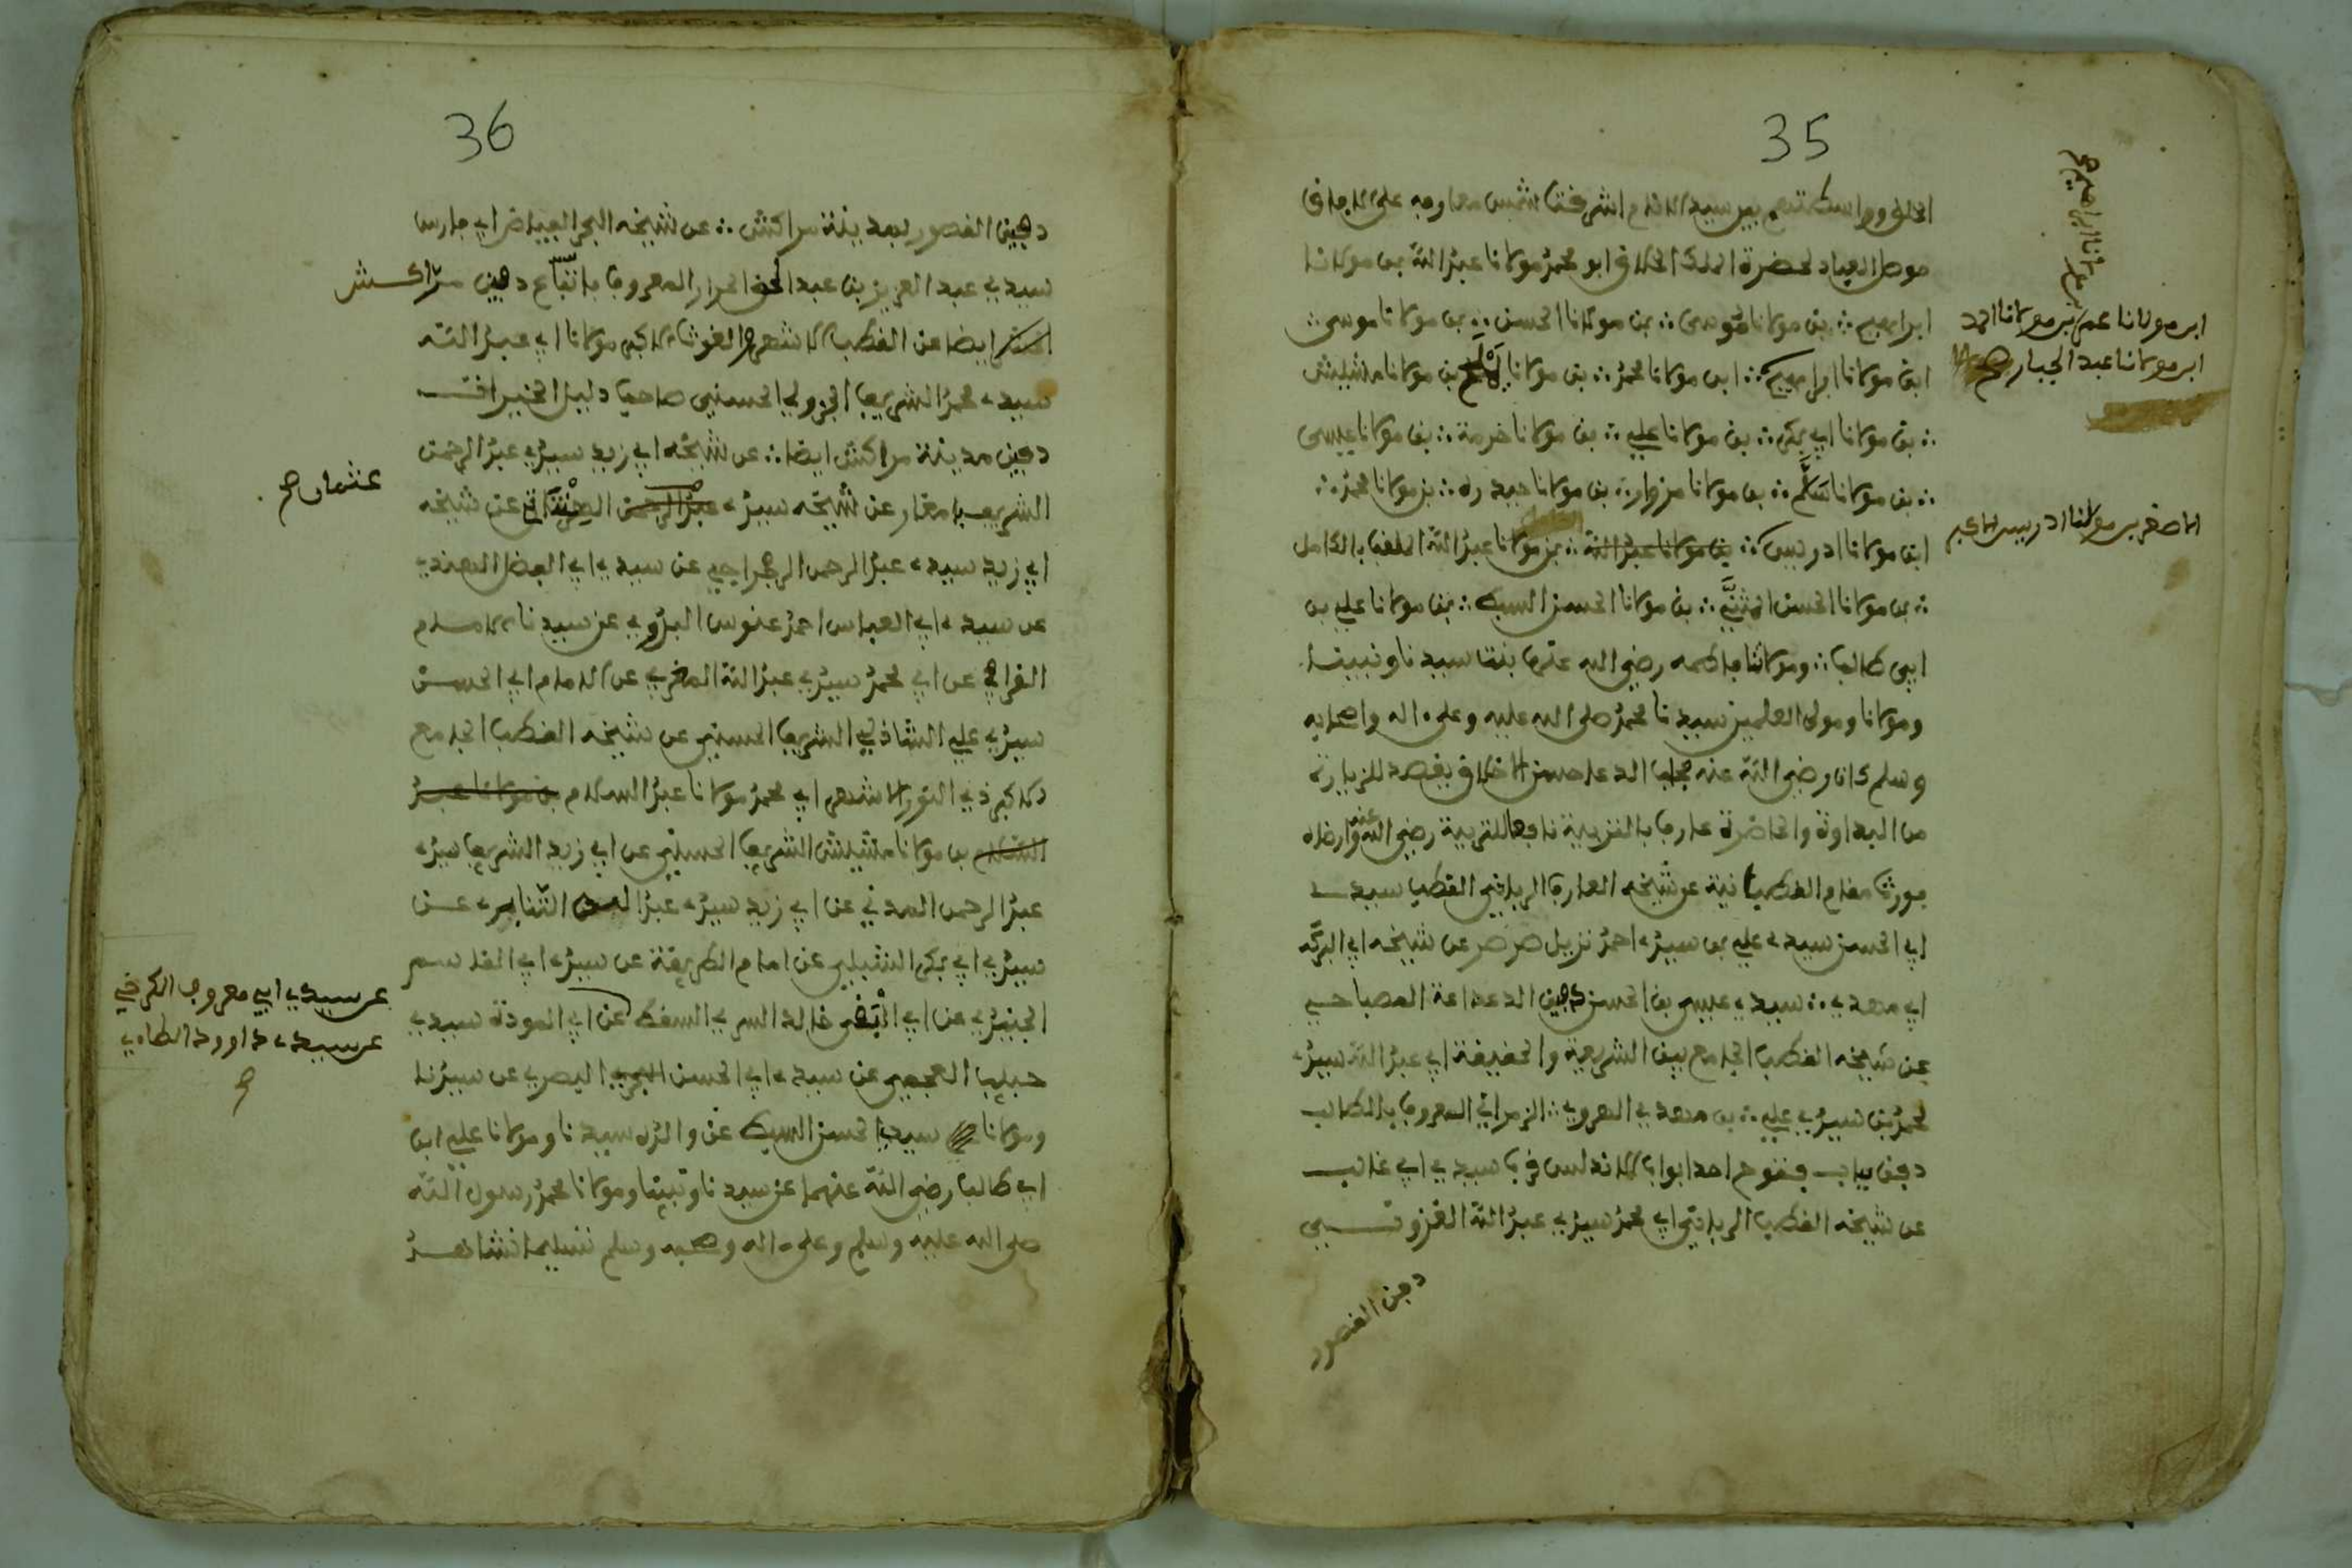 35
الخلق وواسطتهم بين سيد الانام اشرقت شمس معارفه على الافاق
موصل العباد لحضرة الملك الخلاق ابو محمد مولانا عبد الله بن مولانا
ابراهيم ؞ بن مولانا موسى ؞ بن مولانا الحسن ؞ بن مولانا موسى ؞
ابن مولانا ابراهيم ؞ ابن مولانا محمد ؞ بن مولانا يملح بن مولانا مشيش
؞ بن مولانا ابي بكر ؞ بن مولانا علي ؞ بن مولانا حرمة ؞ بن مولانا عيسى
؞ بن مولانا سلّم ؞ بن مولانا مزوار ؞ بن مولانا حيدره ؞ بن مولانا محمد ؞
ابن مولانا ادريس ؞ بن مولانا عبد الله ؞ بن مولانا عبد الله الملقب بالكامل
؞ بن مولانا الحسن المثنى ؞ بن مولانا الحسن السبط ؞ بن مولانا علي بن
ابي طالب ؞ ومولاتنا فاطمه رضي الله عنها بنت سيدنا ونبينا
ومولانا ومولى العلمين سيدنا محمد صلى الله عليه وعلى ءاله واصحابه
وسلم كان رضي الله عنه مجاب الدعا حسن الاخلاق يقصد للزيارة
من البداوة والحاضرة عارفا بالتربية نافعا للتربية رضي الله عنه وارضاه
مورث مقام القطبانية عن شيخه العارف الرباني القطب سيد
ابي الحسن سيدي علي بن سيدي احمد نزيل صرصر عن شيخه ابي البركه
ابي مهدي ؞ سيدي عيسى بن الحسن دفين الدعداعة المصباحي
عن شيخه القطب الجامع بين الشريعة والحقيقة ابي عبد الله سيدي
محمد بن سيدي علي ؞ بن مهدي الهروي ؞ الزمراني المعروف بالطالب
دفن بباب فتوح احد ابواب الاندلس قرب سيدي ابي غالب
عن شيخه القطب الرباني ابي محمد سيدي عبد الله الغزوني
دفن القصور
بن مولانا ابراهيم صح
ابن مولانا عمر بن مولانا احمد
ابن مولانا عبد الجبار صح
الاصغر بن مولانا ادريس الاكبر
36
دفين القصور بمدينة مراكش ؞ عن شيخه البحر الفياض ابي فارس
سيدي عبد العزيز بن عبد الحق الحرار المعروف بالتباع دفين مراكش
ايضا عن القطب الاشهر الغوث الاكبر مولانا ابي عبد الله
سيدي محمد الشريف الجزولي الحسني صاحب دليل الخيرات
دفين مدينة مراكش ايضا ؞ عن شيخه ابي زيد سيدي عبد الرحمن
الشريف بامغار عن شيخه سيدي عبد الرحمن الهنتاتي عن شيخه
ابي زيد سيدي عبد الرحمن الرجراجي عن سيدي ابي الفضل الهندي
عن سيدي ابي العباس احمد عنوس البدوي عن سيدنا الامام
القرافي عن ابي محمد سيدي عبد الله المغربي عن الامام ابي الحسن
سيدي علي الشاذلي الشريف الحسني عن شيخه القطب الجامع
الاكبر ذي النور الاشهر ابي محمد مولانا عبد السلام بن مولانا عبد
السلام بن مولانا مشيش الشريف الحسني عن ابي زيد الشريف سيدي
عبد الرحمن المدني عن ابي زيد سيدي عبد الرحمن التنايري عن
سيدي ابي بكر الشبلي عن امام الطريقة عن سيدي ابي القاسم
الجنيدي عن ابي خالد السري السقطي عن ابي المودة سيدي
حبيب العجمي عن سيدي ابي الحسن البصري عن سيدنا
ومولانا سيدي الحسن السبط عن والده سيدنا ومولانا علي ابن
ابي طالب رضي الله عنهما عن سيدنا ونبينا ومولانا محمد رسول الله
صلى الله عليه وسلم وعلى ءاله وصحبه وسلم تسليما انشا بعد
عثمان صح
عن سيدي ابي معروف الكرخي
عن سيدي داوود الطاءي
صح